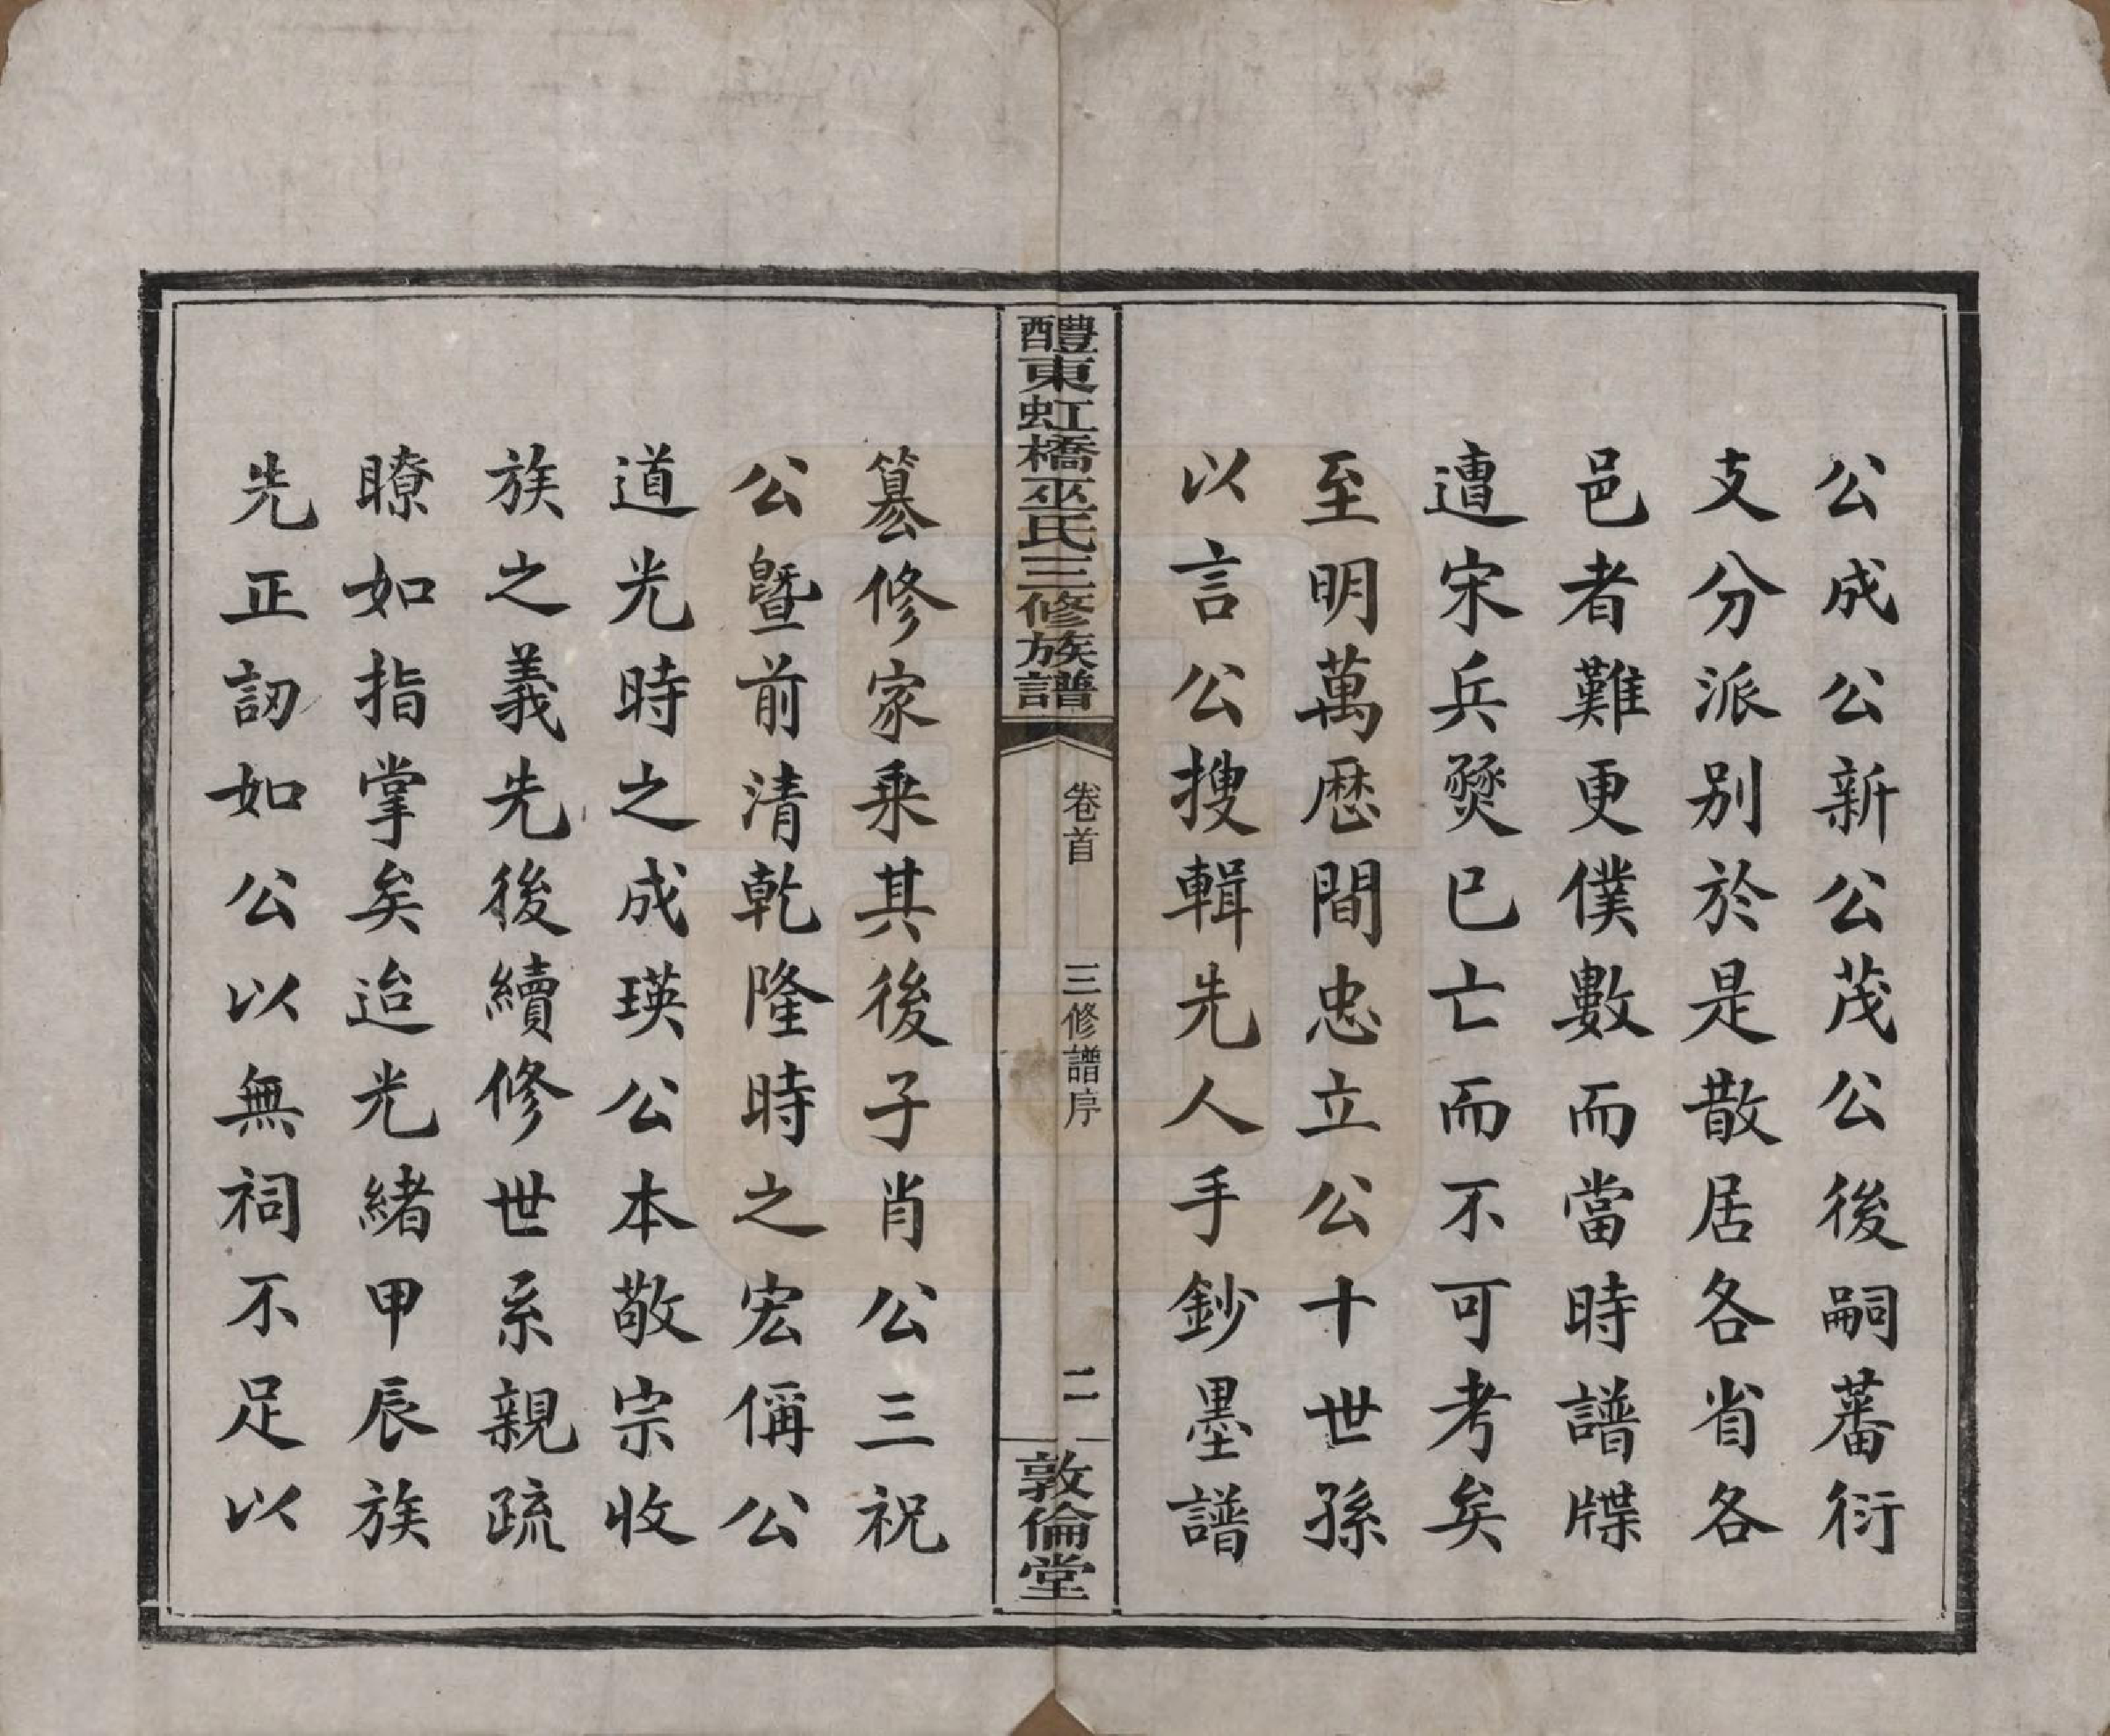 公成公新公茂公後嗣蕃衍
支分派别於是散居各省各
邑者難更僕數而當時譜牒
遭宋兵燹已亡而不可考矣
至明萬厯間忠立公十世孫
以言公搜輯先人手鈔墨譜
醴東虹橋巫氏三修族譜
卷首
三修譜序
二
敦倫堂
纂修家乘其後子肖公三祝
公暨前清乾隆時之宏偁公
道光時之成瑛公本敬宗收
族之義先後續修世系親疏
瞭如指掌矣迨光緒甲辰族
先正訒如公以無祠不足以